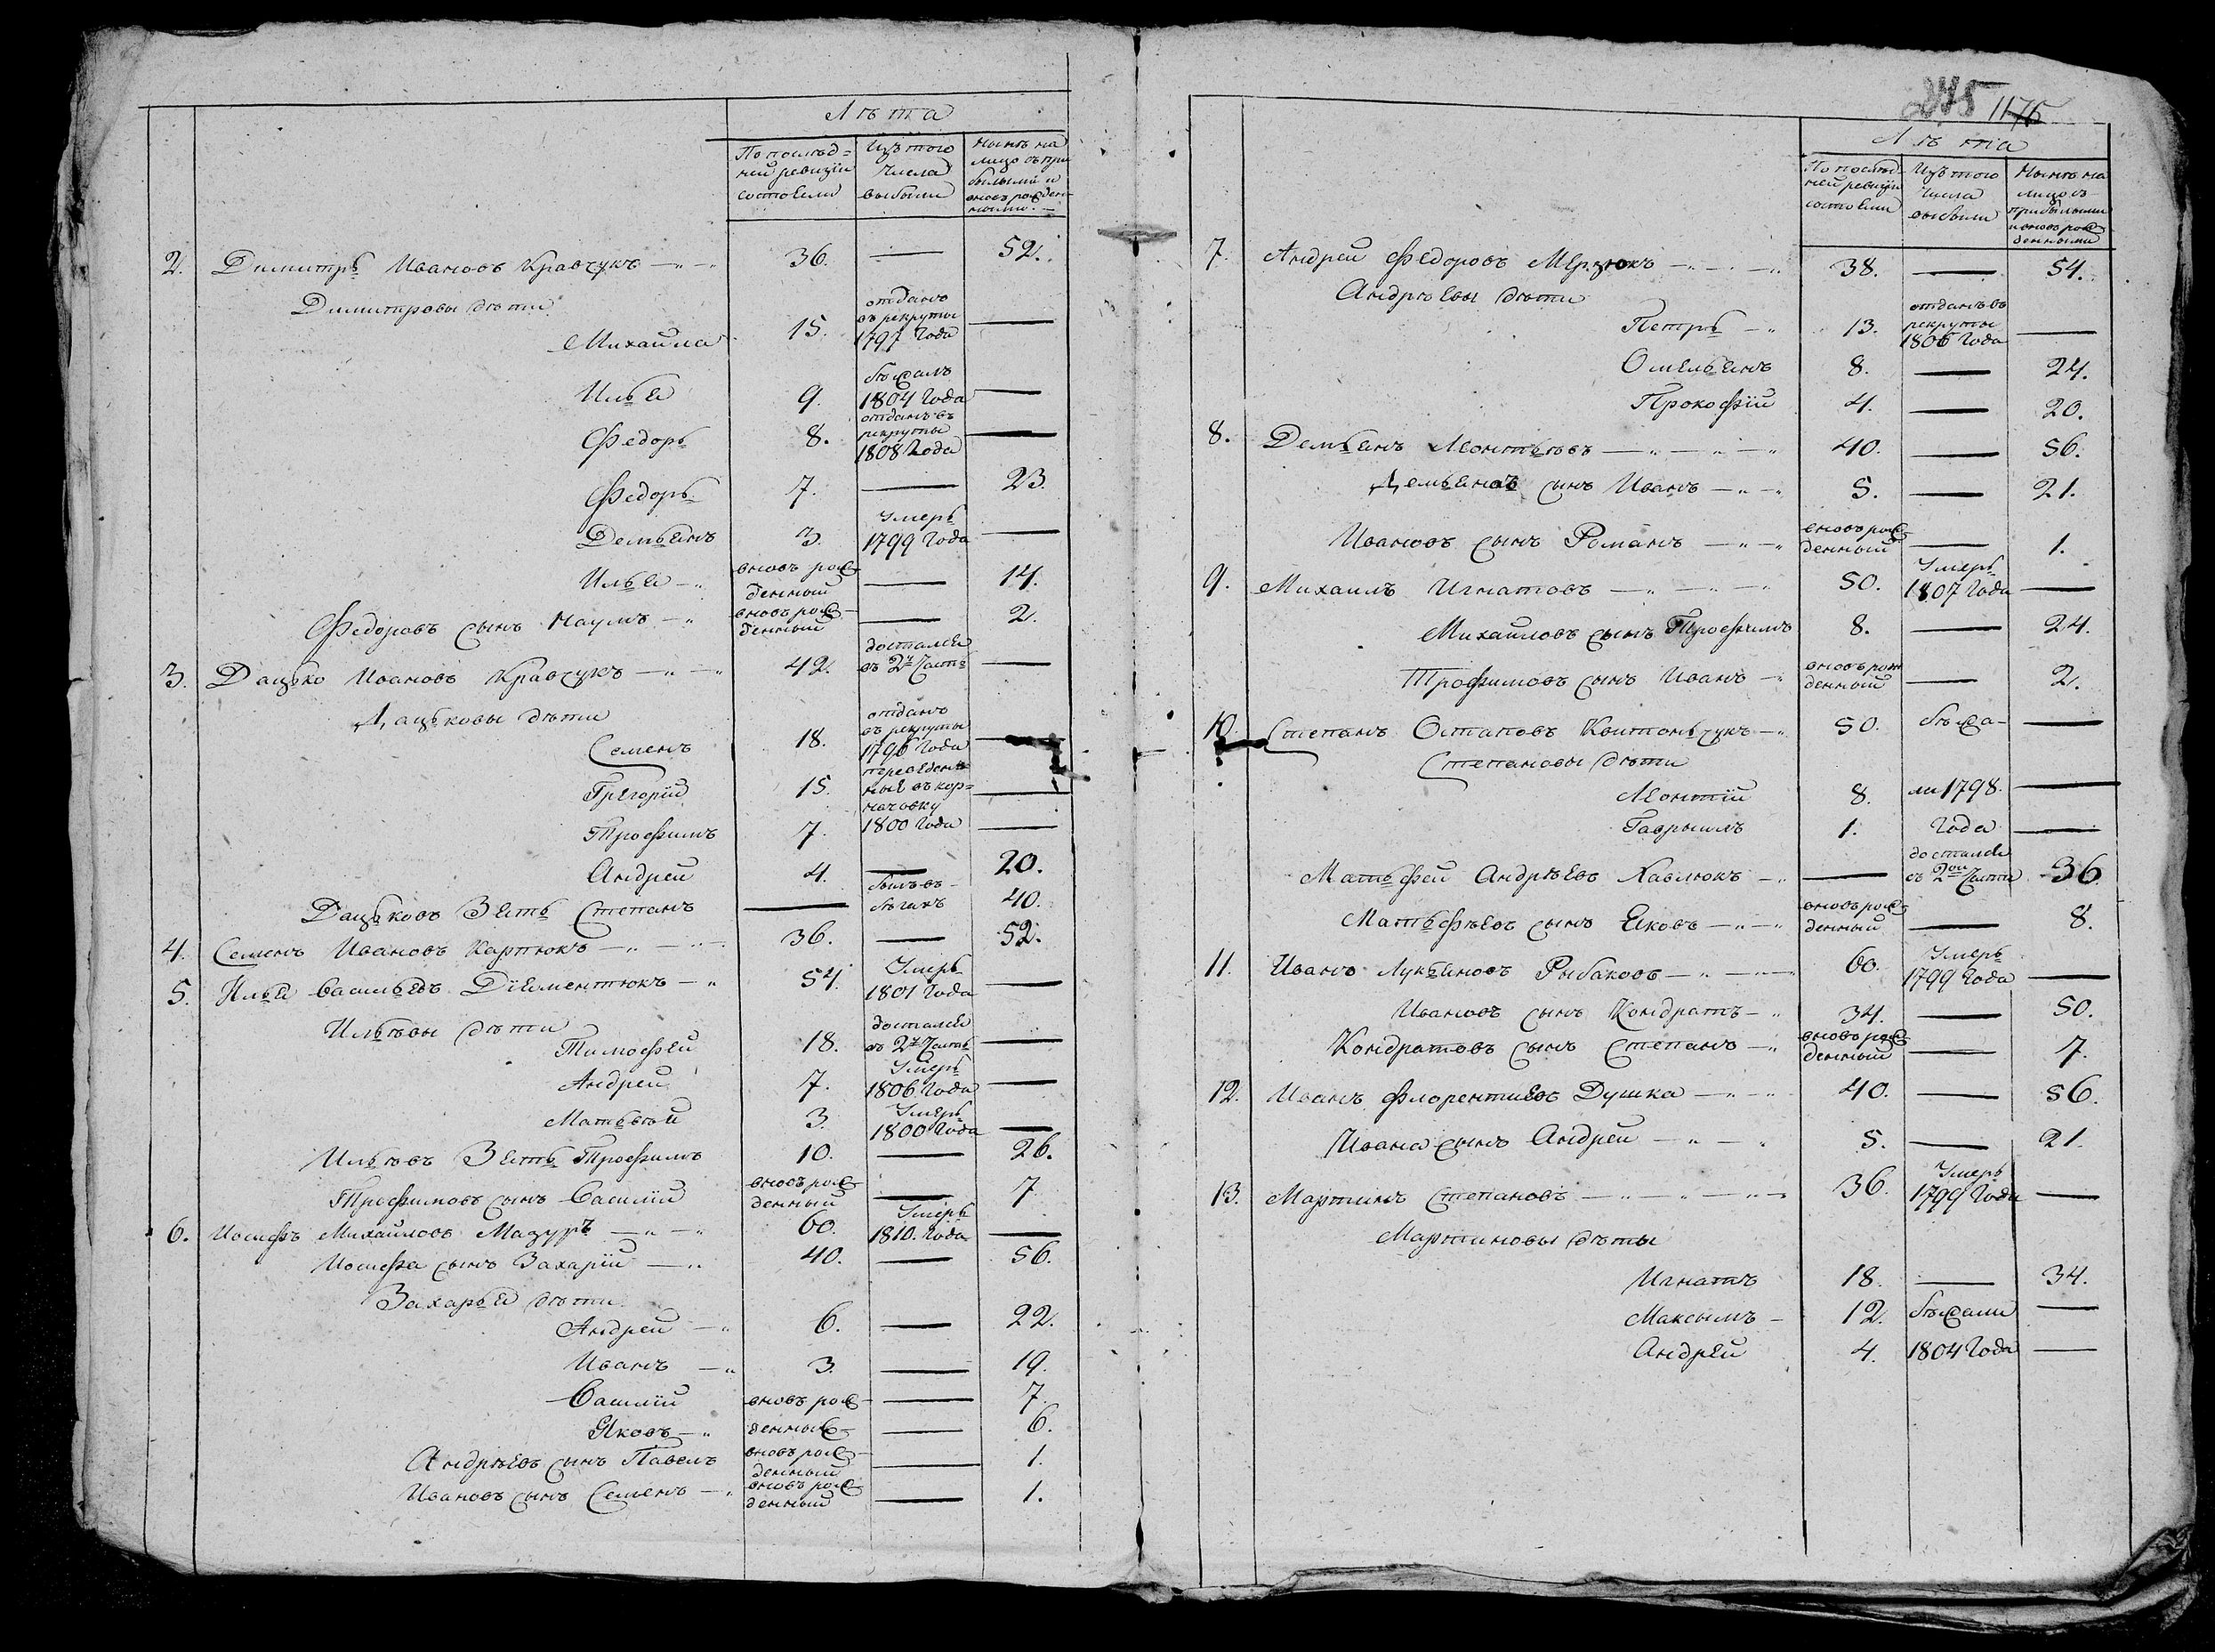 Лѣта
По послѣд=
ней ревизіи
состояли
Изъ того
числа
выбыли
Нынѣ на
лицо съ при
былыми и
вновь рожден-
ными.
2. Димитръ Ивановъ Кравчукъ 36. — 52.
Димитровы дѣти
Михайла 15. отданъ въ рекруты 1797 Года —
Илья 9. бѣжалъ 1804 Года —
Федоръ 8. отданъ въ рекруты 1808 Года —
Федоръ 7. — 23.
Демьянъ 3. Умеръ 1799 Года —
Илья вновь рожденный — 14.
Федоровъ сынъ Наумъ вновь рожденный — 2.
3. Дацько Ивановъ Кравчукъ 42. достался въ 2й Часть —
Дацьковы дѣти
Семенъ 18. отданъ въ рекруты 1796 Года —
Грегорій 15. переведен-
ные въ кор=
начовку —
Трофимъ 7. 1800 Года —
Андрей 4. — 20.
Дацьковъ Зять Степанъ — былъ въ бѣгахъ 40.
4. Семенъ Ивановъ Карпюкъ 36. — 52.
5. Илья Васильевъ Діяментюкъ 54. Умеръ 1801 Года —
Ильѣвы дѣти
Тимофей 18. достался въ 2й Часть —
Андрей 7. Умеръ 1806 Года —
Матвѣй 3. Умеръ 1800 Года —
Ильѣвъ Зять Трофимъ 10. — 26.
Трофимовъ сынъ Василій вновь рожденный — 7
6. Иосифъ Михайловъ Мазуръ 60. Умеръ 1810. Года —
Иосифа сынъ Захарій 40. — 56.
Захарья дѣти
Андрей 6. — 22.
Иванъ 3. — 19.
Василій вновь рож- — 7.
Яковъ денные — 6.
Андрѣевъ сынъ Павелъ вновь рожденный — 1.
Ивановъ сынъ Семенъ вновь рожденный — 1.
275 1175
Лѣта
По послѣд-
ней ревизіи
состояли
Изъ того
числа
выбыли
Нынѣ на
лицо съ
прибылыми
и вновь рож
денными
7. Андрей Федоровъ Мерзюкъ 38. — 54.
Андрѣевы дѣти
Петръ 13. отданъ въ рекруты 1806 Года —
Омельянъ 8. — 24.
Прокофій 4. — 20.
8. Демьянъ Леонтьевъ 40. — 56.
Демьяновъ сынъ Иванъ 5. — 21.
Ивановъ сынъ Романъ вновь рожденный — 1.
9. Михаилъ Игнатовъ 50. Умеръ 1807 Года —
Михайловъ сынъ Трофимъ 8. — 24.
Трофимовъ сынъ Иванъ вновь рожденный — 2.
10. Степанъ Остаповъ Квитоньчукъ 50. бѣжа- —
Степановы дѣти
Леонтій 8. ли 1798. —
Гаврыилъ 1. Года —
Матьфей Андрѣевъ Павлюкъ — достался съ 2ой Части 36
Матьфѣевъ сынъ Яковъ вновь рожденный — 8.
11. Иванъ Лукьяновъ Рыбаковъ 60. Умеръ 1799 Года —
Ивановъ сынъ Кондратъ 34. — 50.
Кондратовъ сынъ Степанъ вновь рожденный — 7.
12. Иванъ Флорентиевъ Душка 40. — 56.
Ивана сынъ Андрей 5. — 21.
13. Мартинъ Степановъ 36. Умеръ 1799 Года —
Мартиновы дѣты
Игнатъ 18. — 34.
Максымъ 12. бѣжали —
Андрей 4. 1804 Года —